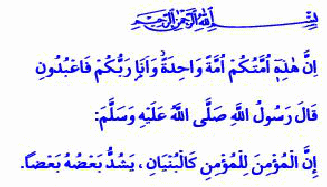 بِسْمِ اللّٰهِ الرَّحْمٰنِ الرَّحِيمِ
اِنَّ هٰذِهٖٓ اُمَّتُكُمْ اُمَّةً وَاحِدَةًۘ وَاَنَا۬ رَبُّكُمْ فَاعْبُدُونِ
قَالَ رَسُولُ اللَّهِ صَلَّى اللَّهُ عَلَيْهِ وَسَلَّمَ:
إِنَّ الْمُؤْمِنَ لِلْمُؤْمِنِ كَالْبُنْيَانِ ، يَشُدُّ بَعْضُهُ بَعْضاً.